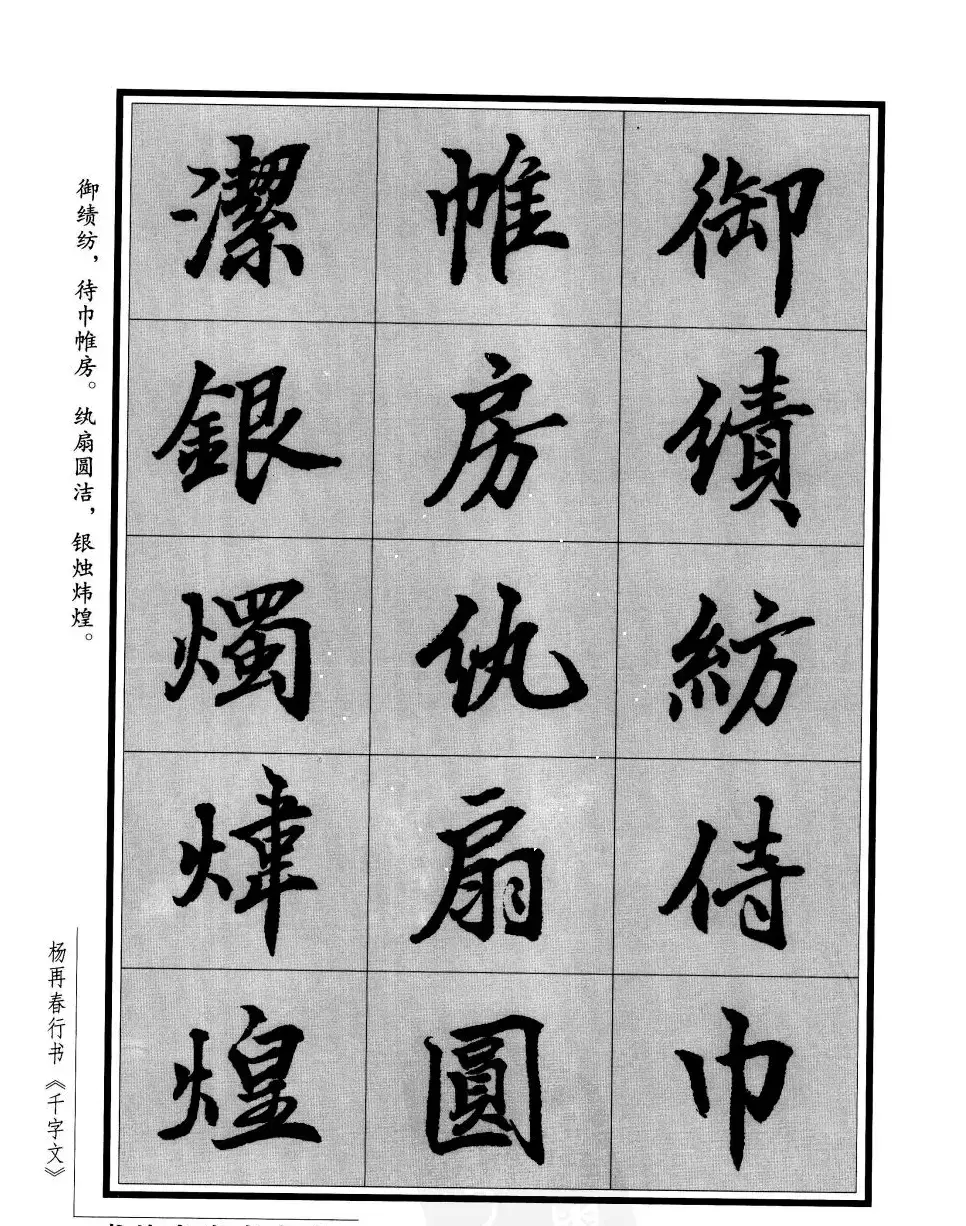 御績紡侍巾
帷房紈扇圓
潔銀燭煒煌
御绩纺，待巾帷房。纨扇圆洁，银烛炜煌。
杨再春行书《千字文》